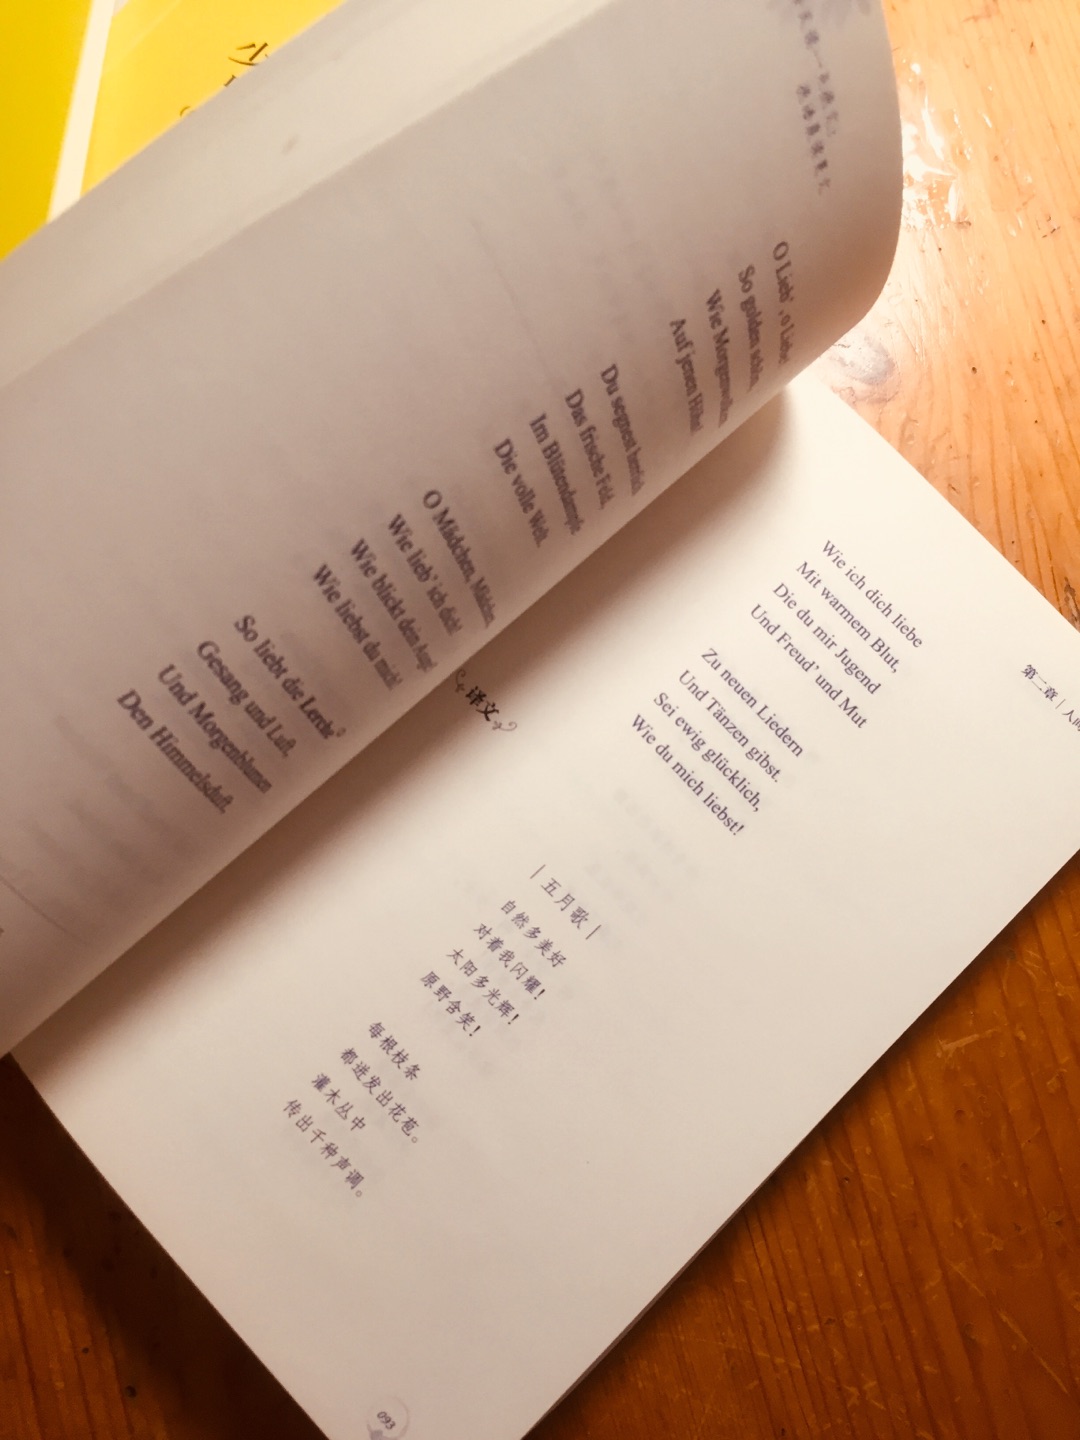 少
O Lieb', o Liebe!
So golden schön,
Wie Morgenwolken
Auf jenen Höhn!
Du segnest herrlich
Das frische Feld,
Im Blütendampfe
Die volle Welt.
O Mädchen, Mädchen,
Wie lieb' ich dich!
Wie blickt dein Aug!
Wie liebst du mich!
So liebt die Lerche
Gesang und Luft,
Und Morgenblumen
Den Himmelsduft.
第二章 | 人间
Wie ich dich liebe
Mit warmem Blut,
Die du mir Jugend
Und Freud' und Mut
Zu neuen Liedern
Und Tänzen gibst.
Sei ewig glücklich,
Wie du mich liebst!
译文
| 五月歌 |
自然多美好
对着我闪耀!
太阳多光辉!
原野含笑!
每根枝条
都迸发出花苞。
灌木丛中
传出千种声调。
093